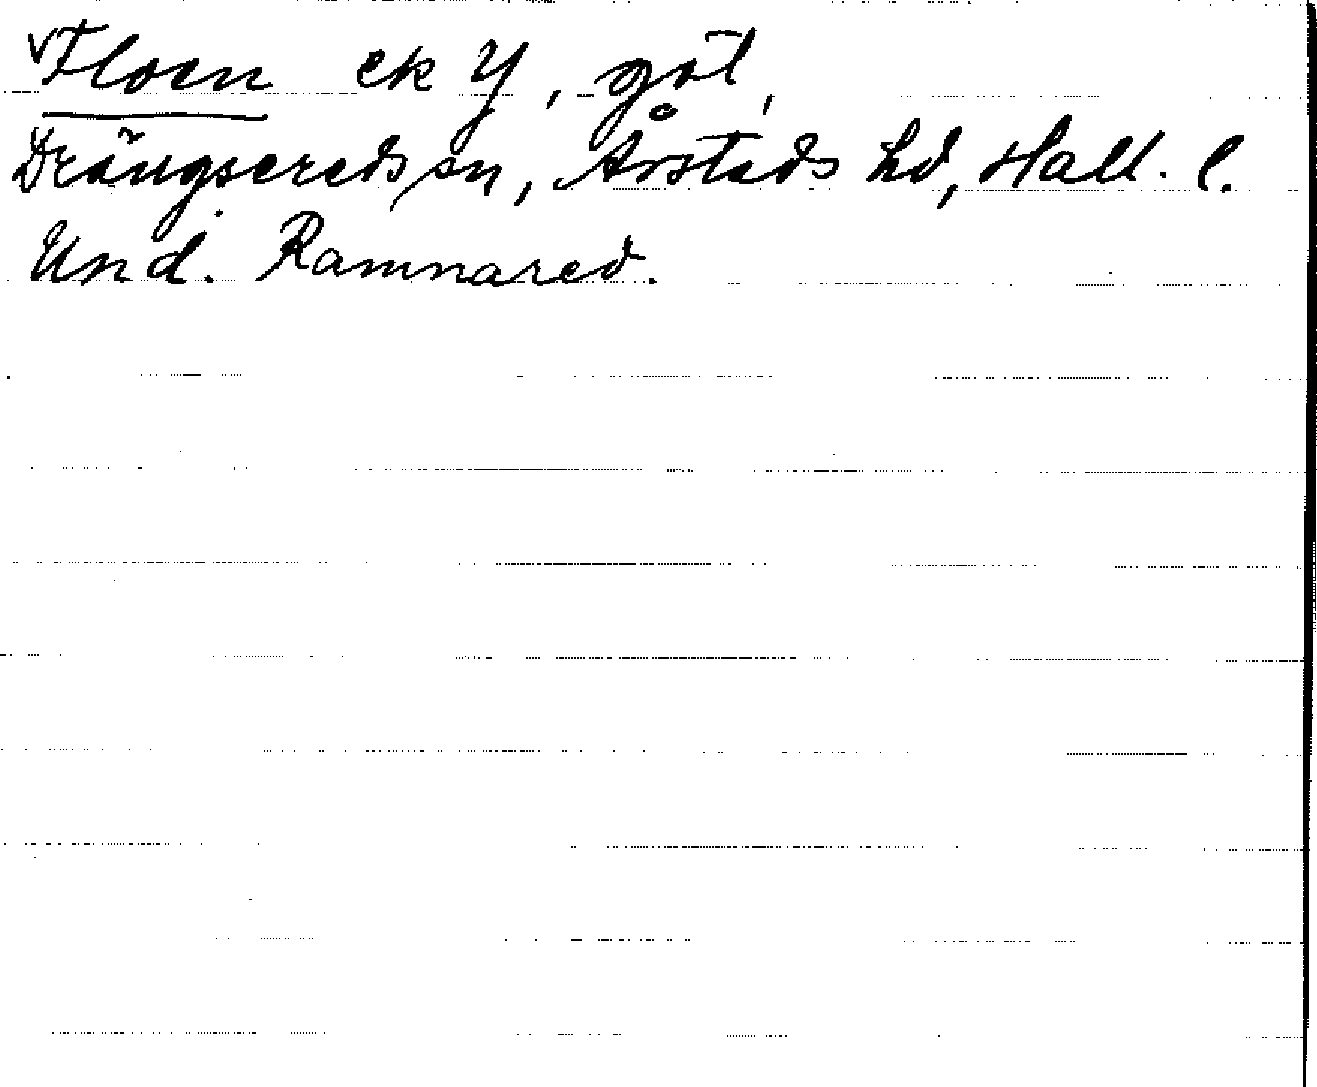 v Floen ek Y, göl,
Drängsereds sn, Årstads hd, Hall. l.
Und. Ramnared.